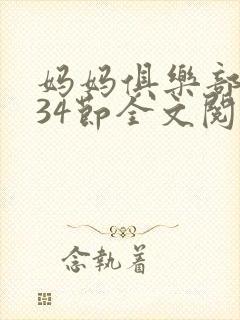 妈妈俱樂部
34節全文閱
念執着